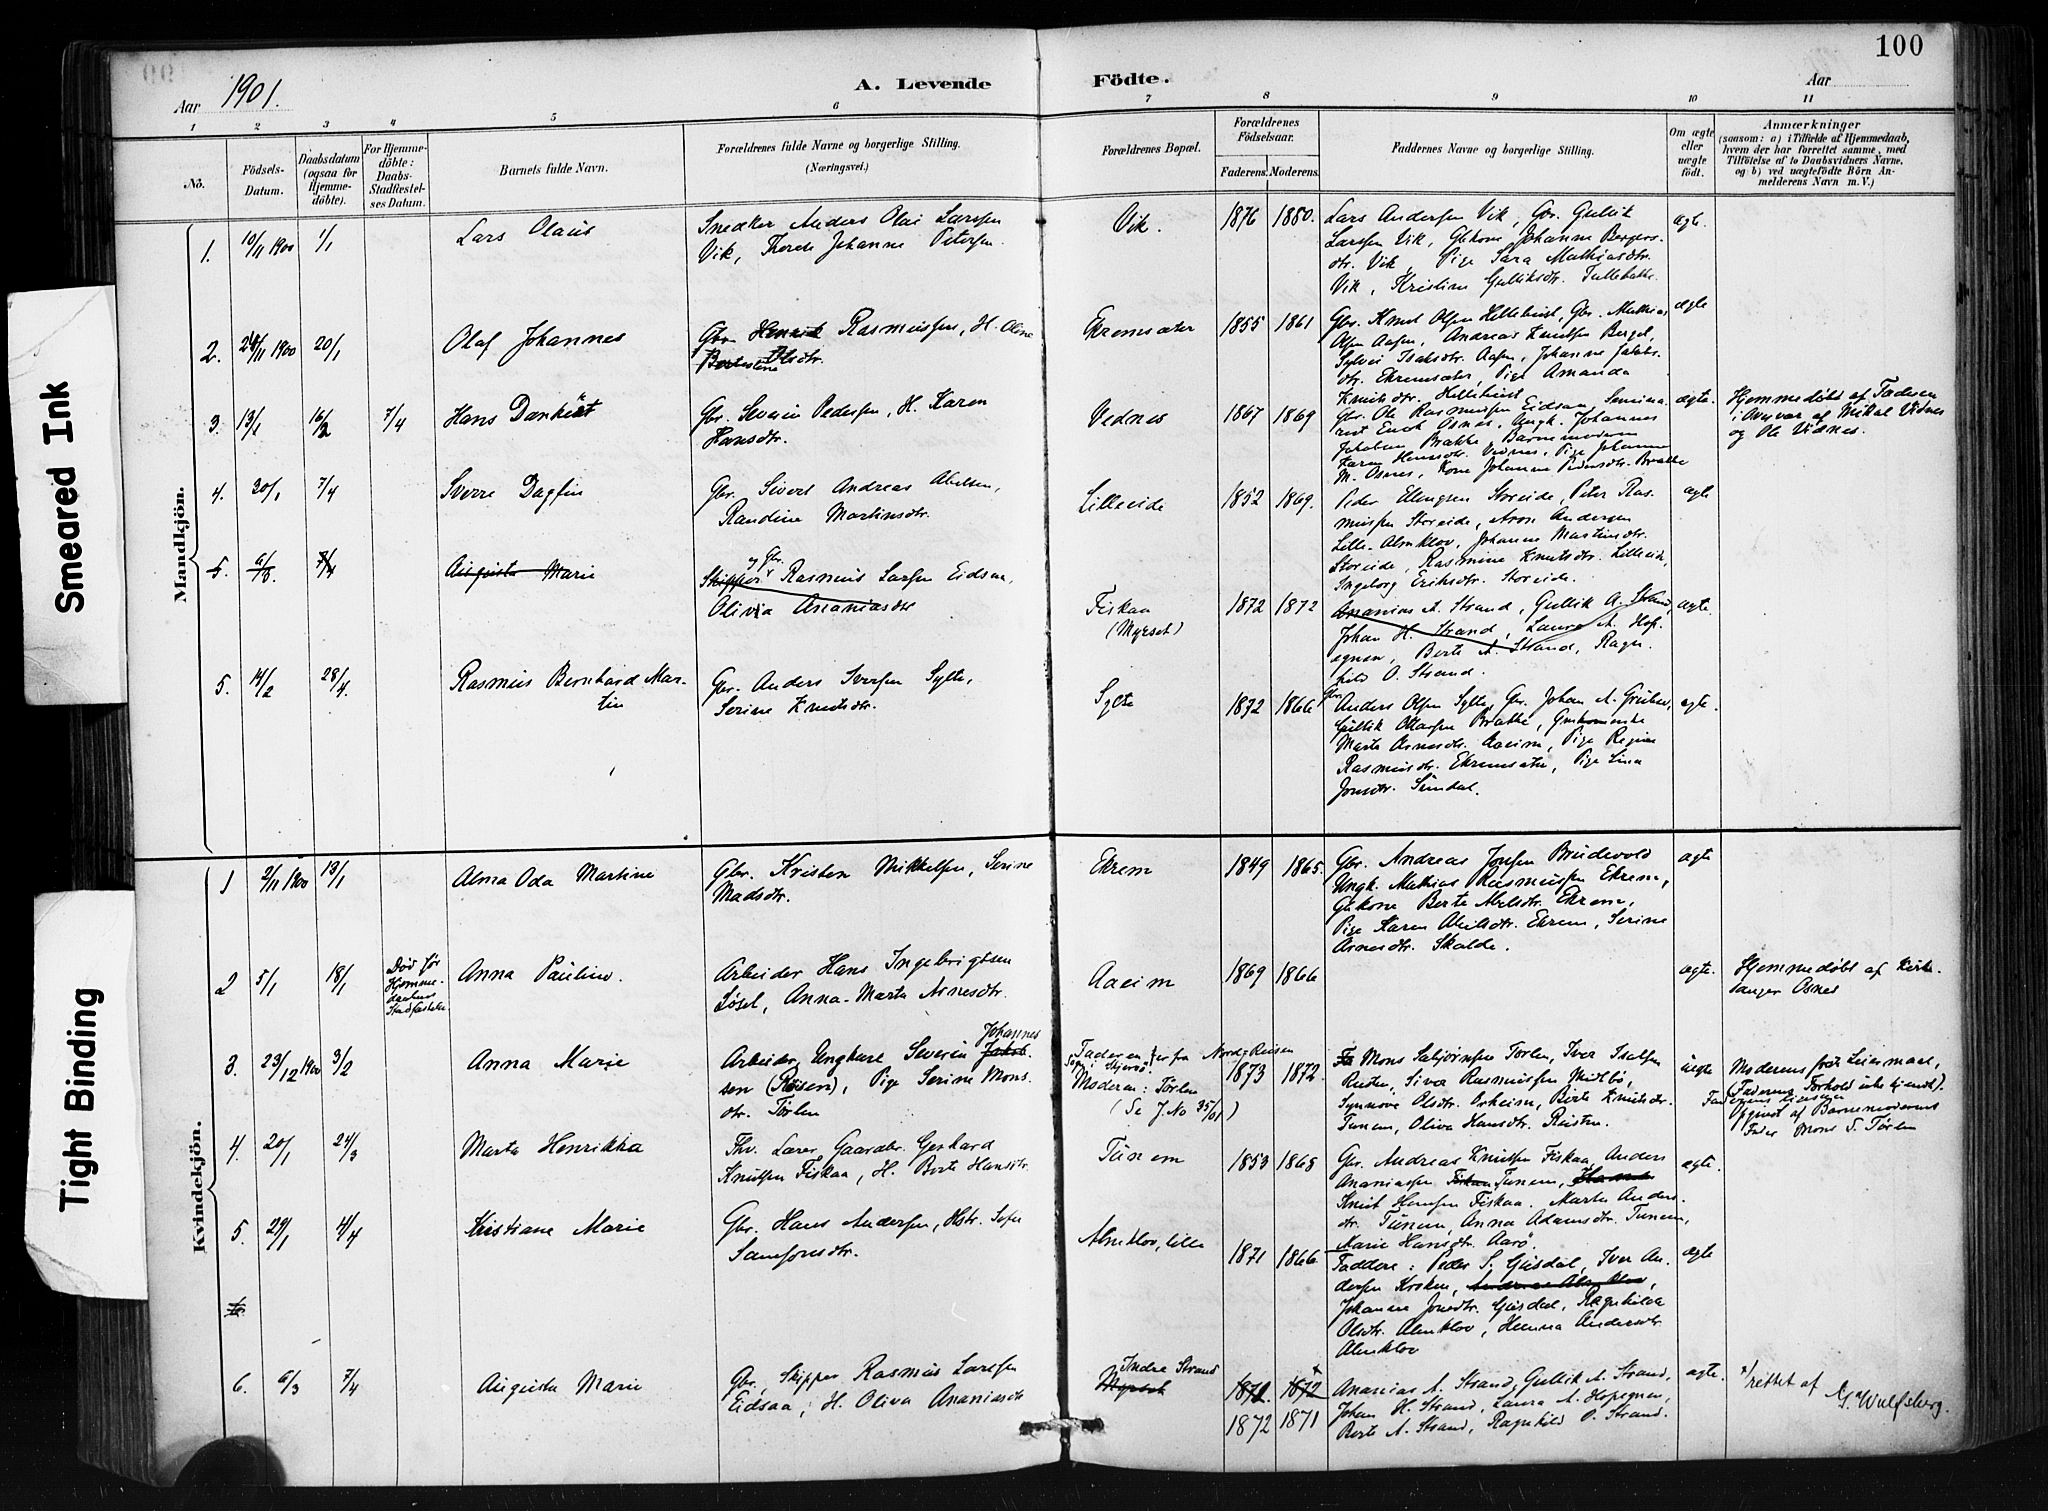 100
Aar 1901.
A. Levende Födte.
Aar
1 2 3 4 5 6 7 8 9 10 11
No.
Födsels-Datum.
Daabsdatum (ogsaa for Hjemmedöbte).
For Hjemmedöbte: Daabs-Stadfæstelses Datum.
Barnets fulde Navn.
Forældrenes fulde Navne og borgerlige Stilling.
(Næringsvei.)
Forældrenes Bopæl.
Forældrenes Födselsaar.
Faderens. Moderens.
Faddernes Navne og borgerlige Stilling.
Om ægte eller uægte födt.
Anmærkninger
(saasom: a) i Tilfælde af Hjemmedaab, hvem der har forrettet samme, med Tilföielse af to Daabsvidners Navne. og b) ved uægtefödte Börn Anmelderens Navn m. V.)
Mandkjön.
1. 10/11 1900 1/1 Lars Olaus
Snedker Anders Olai Larssen
Vik, Johanne Petersen
Vik. 1876 1880.
Lars Andersen Vik, Gbr. Gullik
Larssen Vik, Gbkone Johanne Bergers-
dtr. Vik, Pige Sara Mathiasdtr.
Vik, Kristine Gulliksdtr.
ægte.
2. 24/11 1900 20/1 Olaf Johannes
Gbr. Henrik Rasmussen, H. Oline
Olsdtr.
Ekremsæter 1855 1861
Gbr. Knut Olsen Hellebust, Gbr. Mathias
Olsen Aasen, Andreas Knutsen Berget,
Sylvei Isaksdtr. Aasen, Johanne Jakobs-
dtr. Ekremsæter, Pige Amanda
Knutsdtr. Hellebust
ægte
3. 13/1 16/2 7/4 Hans Dankert
Gbr. Severin Pedersen, H. Karen
Hansdtr.
Vednes 1867 1869
Gbr. Ole Rasmussen Eidsaa, Semina-
rist Enok Osnes, Ungk. Johannes
Jakobsen Brække, Barnemoderen
Karen Hansdtr. Vednes, Pige Johanne
M. Osnes, Kone Johanne Pedersdtr. Brække
ægte.
Hjemmedøbt af Faderen
i Overvær af Mikal Vidnes
og Ole Vidnes.
4. 30/1 7/4 Sverre Dagfin
Gbr. Sivert Andreas Abelsen,
Randine Martinsdtr.
Lilleeide 1852 1869.
Peder Ellingsen Storeide, Peter Ras-
mussen Storeide, Aron Andersen
Lille-Almklov, Johanne Martinsdtr.
Storeide, Rasmine Knutsdtr. Lilleeide,
Ingeborg Eriksdtr. Storeide.
ægte
5. 6/3. 7/4 Augusta Marie
og Gbr.
Skipper Rasmus Larsen Eidsaa,
Olivia Ananiasdtr
Fiskaa
(Myrset)
1872 1872
Ananias A. Strand, Gullik A. Strand,
Johan H. Strand, Laura A. Hop-
egnen, Berte A. Strand, Ragn-
hild O. Strand.
ægte.
5. 14/2 28/4. Rasmus Bernhard Mar-
tin
Gbr. Anders Iversen Sylte,
Serine Knutsdtr.
Sylte 1872 1866
Gbr. Anders Olsen Sylte, Gbr. Johan A.
Gullik Ottarsen Brække,
Marta Arnesdtr. Aaeim, Pige Regine
Rasmusdtr. Ekremsæter, Pige Lina
Jonsdtr. Sundal.
ægte.
Kvindekjön.
1 2/11 1900 13/1 Alma Oda Martine
Gbr. Kristen Mikkelsen, Serine
Madsdtr.
Ekrem 1849 1865.
Gbr. Andreas Jonsen Brudevold
Ungk. Mathias Rasmussen Ekrem,
Gbkone Berte Abelsdtr. Ekrem,
Pige Karen Abelsdtr. Ekrem, Serine
Arnesdtr. Skolde.
ægte
2 5/1 18/1
Død før
Hjemme-
daabens
Stadfæstelse.
Anna Pauline.
Arbeider Hans Ingebrigtsen
Løset, Anna-Marta Arnesdtr.
Aaeim 1869 1866
ægte.
Hjemmedøbt af Kirke-
sanger Osnes
3. 23/12 1900 3/2 Anna Marie
Johannes
Arbeider, Ungkarl Severin Jakob-
sen (Røsen), Pige Serine Mons-
dtr. Tørlen
Faderen: er fra Nord-Reisen
Moderen: Tørlen
(Se J.No 35/01)
1873 1872.
Mons Salomonsen Tørlen, Iver Isaksen
Rusten, Siver Rasmussen Midtbø,
Synnøve Olsdtr. Orheim, Berte Knutsdtr.
Tunem, Oliva Hansdtr. Rusten.
uægte
Moderens første Leiermaal,
(Faderens Forhold ikke kjendt).
Opgivet af Barnemoderens
Fader Mons S. Tørlen
4. 20/1 24/3 Marta Henrikka
Fhv. Lærer, Gaardbr. Gerhard
Knutsen Fiskaa, H. Berte Hansdtr.
Tunem 1853 1865
Gbr. Andreas Knutsen Fiskaa, Anders
Ananiassen Fiskaa Tunem,
Knut Hansen Fiskaa. Marta Anders-
dtr. Tunem, Anna Adamsdtr. Tunem,
Marie Hansdtr. Aarø.
ægte.
5. 29/1 4/4 Kristiane Marie
Gbr. Hans Andersen, Hstr. Sofie
Samsonsdtr.
Almklov, lille 1871 1866
Faddere: Peder S. Gusdal, Iver An-
dersen Kroken,
Johanne Jonsdtr. Gusdal, Ragnhilda
Olsdtr. Almklov, Hanna Andersdtr.
Almklov
ægte
6.
6. 6/3 7/4 Augusta Marie
Gbr., Skipper Rasmus Larssen
Eidsaa, H. Oliva Ananiasdtr
Indre Strand
Myrset
1872. 1872 x
1872 1871
Ananias A. Strand, Gullik A. Strand,
Johan H. Strand, Laura A. Hopegnen,
Berte A. Strand, Ragnhild O. Strand.
ægte.
x/ rettet af
G. Wulfsberg.
Smeared Ink
Tight Binding